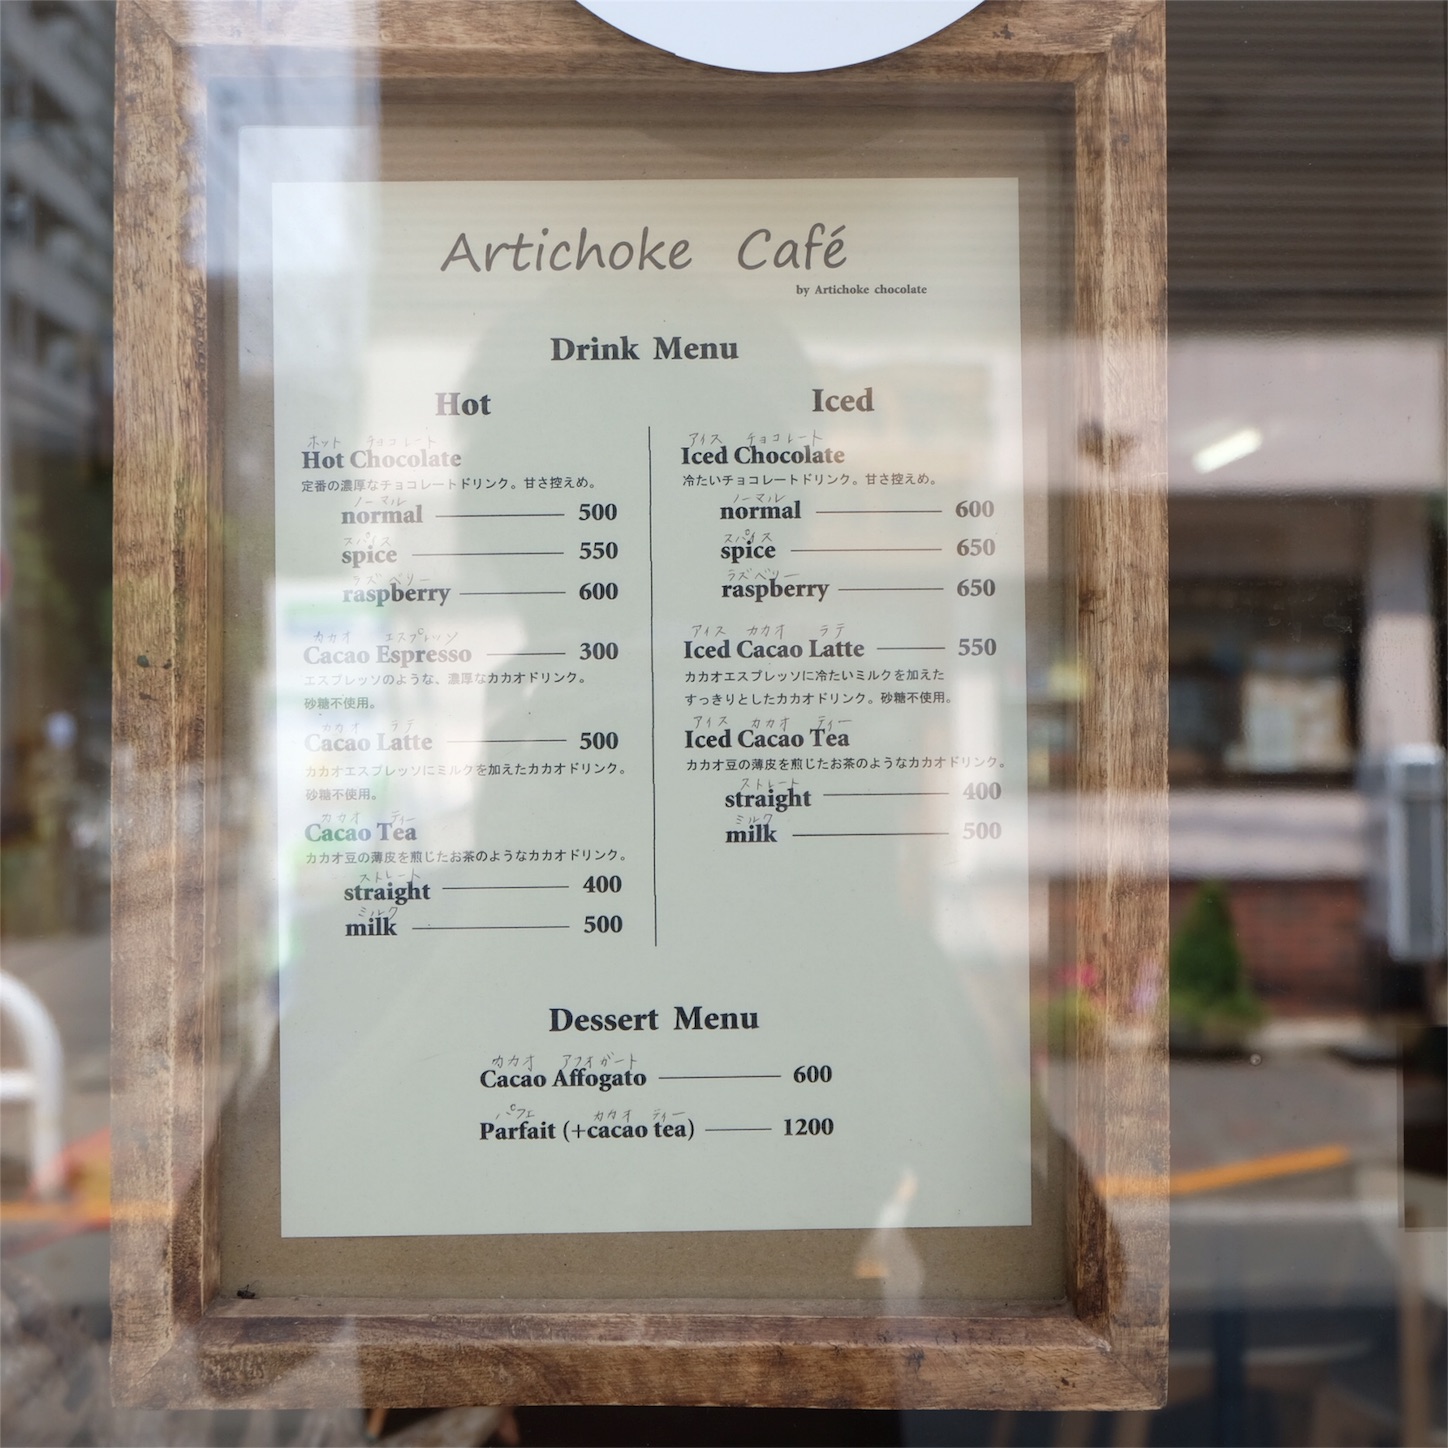 Artichoke Café
by Artichoke chocolate
Drink Menu
Hot
ホット チョコレート
Hot Chocolate
定番の濃厚なチョコレートドリンク。甘さ控えめ。
ノーマル
normal 500
スパイス
spice 550
ラズベリー
raspberry 600
カカオ エスプレッソ
Cacao Espresso 300
エスプレッソのような、濃厚なカカオドリンク。
砂糖不使用。
カカオ ラテ
Cacao Latte 500
カカオエスプレッソにミルクを加えたカカオドリンク。
砂糖不使用。
カカオ ティー
Cacao Tea
カカオ豆の薄皮を煎じたお茶のようなカカオドリンク。
ストレート
straight 400
ミルク
milk 500
Iced
アイス チョコレート
Iced Chocolate
冷たいチョコレートドリンク。甘さ控えめ。
ノーマル
normal 600
スパイス
spice 650
ラズベリー
raspberry 650
アイス カカオ ラテ
Iced Cacao Latte 550
カカオエスプレッソに冷たいミルクを加えた
すっきりとしたカカオドリンク。砂糖不使用。
アイス カカオ ティー
Iced Cacao Tea
カカオ豆の薄皮を煎じたお茶のようなカカオドリンク。
ストレート
straight 400
ミルク
milk 500
Dessert Menu
カカオ アフォガート
Cacao Affogato 600
パフェ カカオ ティー
Parfait (+cacao tea) 1200